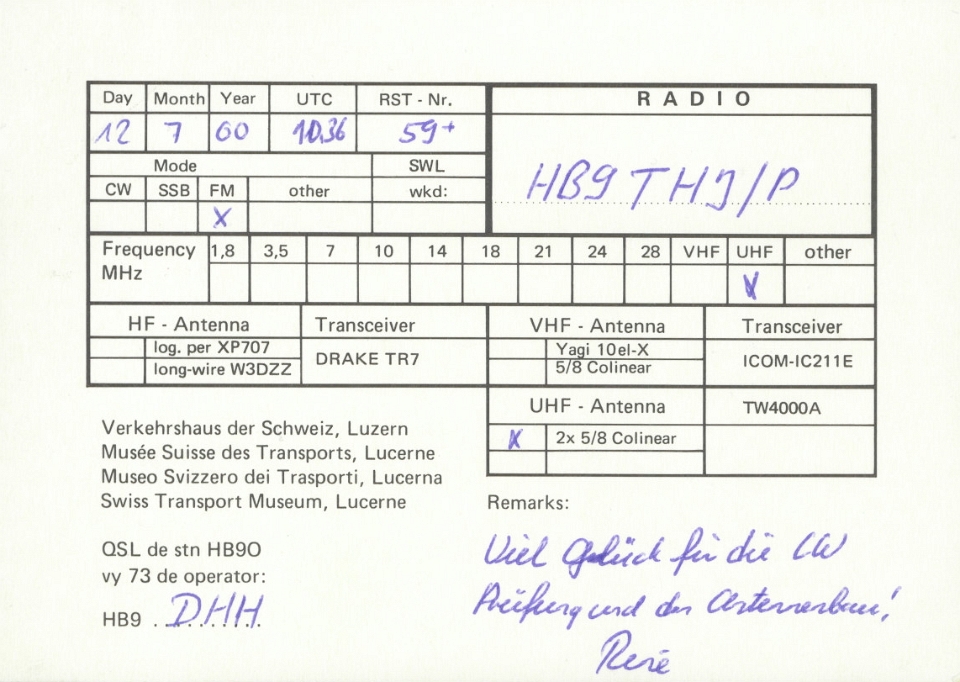 Day Month Year UTC RST - Nr. RADIO
12 7 60 10.36 59+
HB9THJ/P
Mode SWL
CW SSB FM other wkd:
X
Frequency MHz 1,8 3,5 7 10 14 18 21 24 28 VHF UHF other
X
HF - Antenna Transceiver VHF - Antenna Transceiver
log. per XP707 DRAKE TR7 Yagi 10el-X ICOM-IC211E
long-wire W3DZZ 5/8 Colinear
UHF - Antenna TW4000A
X 2x 5/8 Colinear
Verkehrshaus der Schweiz, Luzern
Musée Suisse des Transports, Lucerne
Museo Svizzero dei Trasporti, Lucerna
Swiss Transport Museum, Lucerne
QSL de stn HB9O
vy 73 de operator:
HB9 DHH
Remarks:
Viel Glück für die CW
Prüfung und den Antennenbau!
René